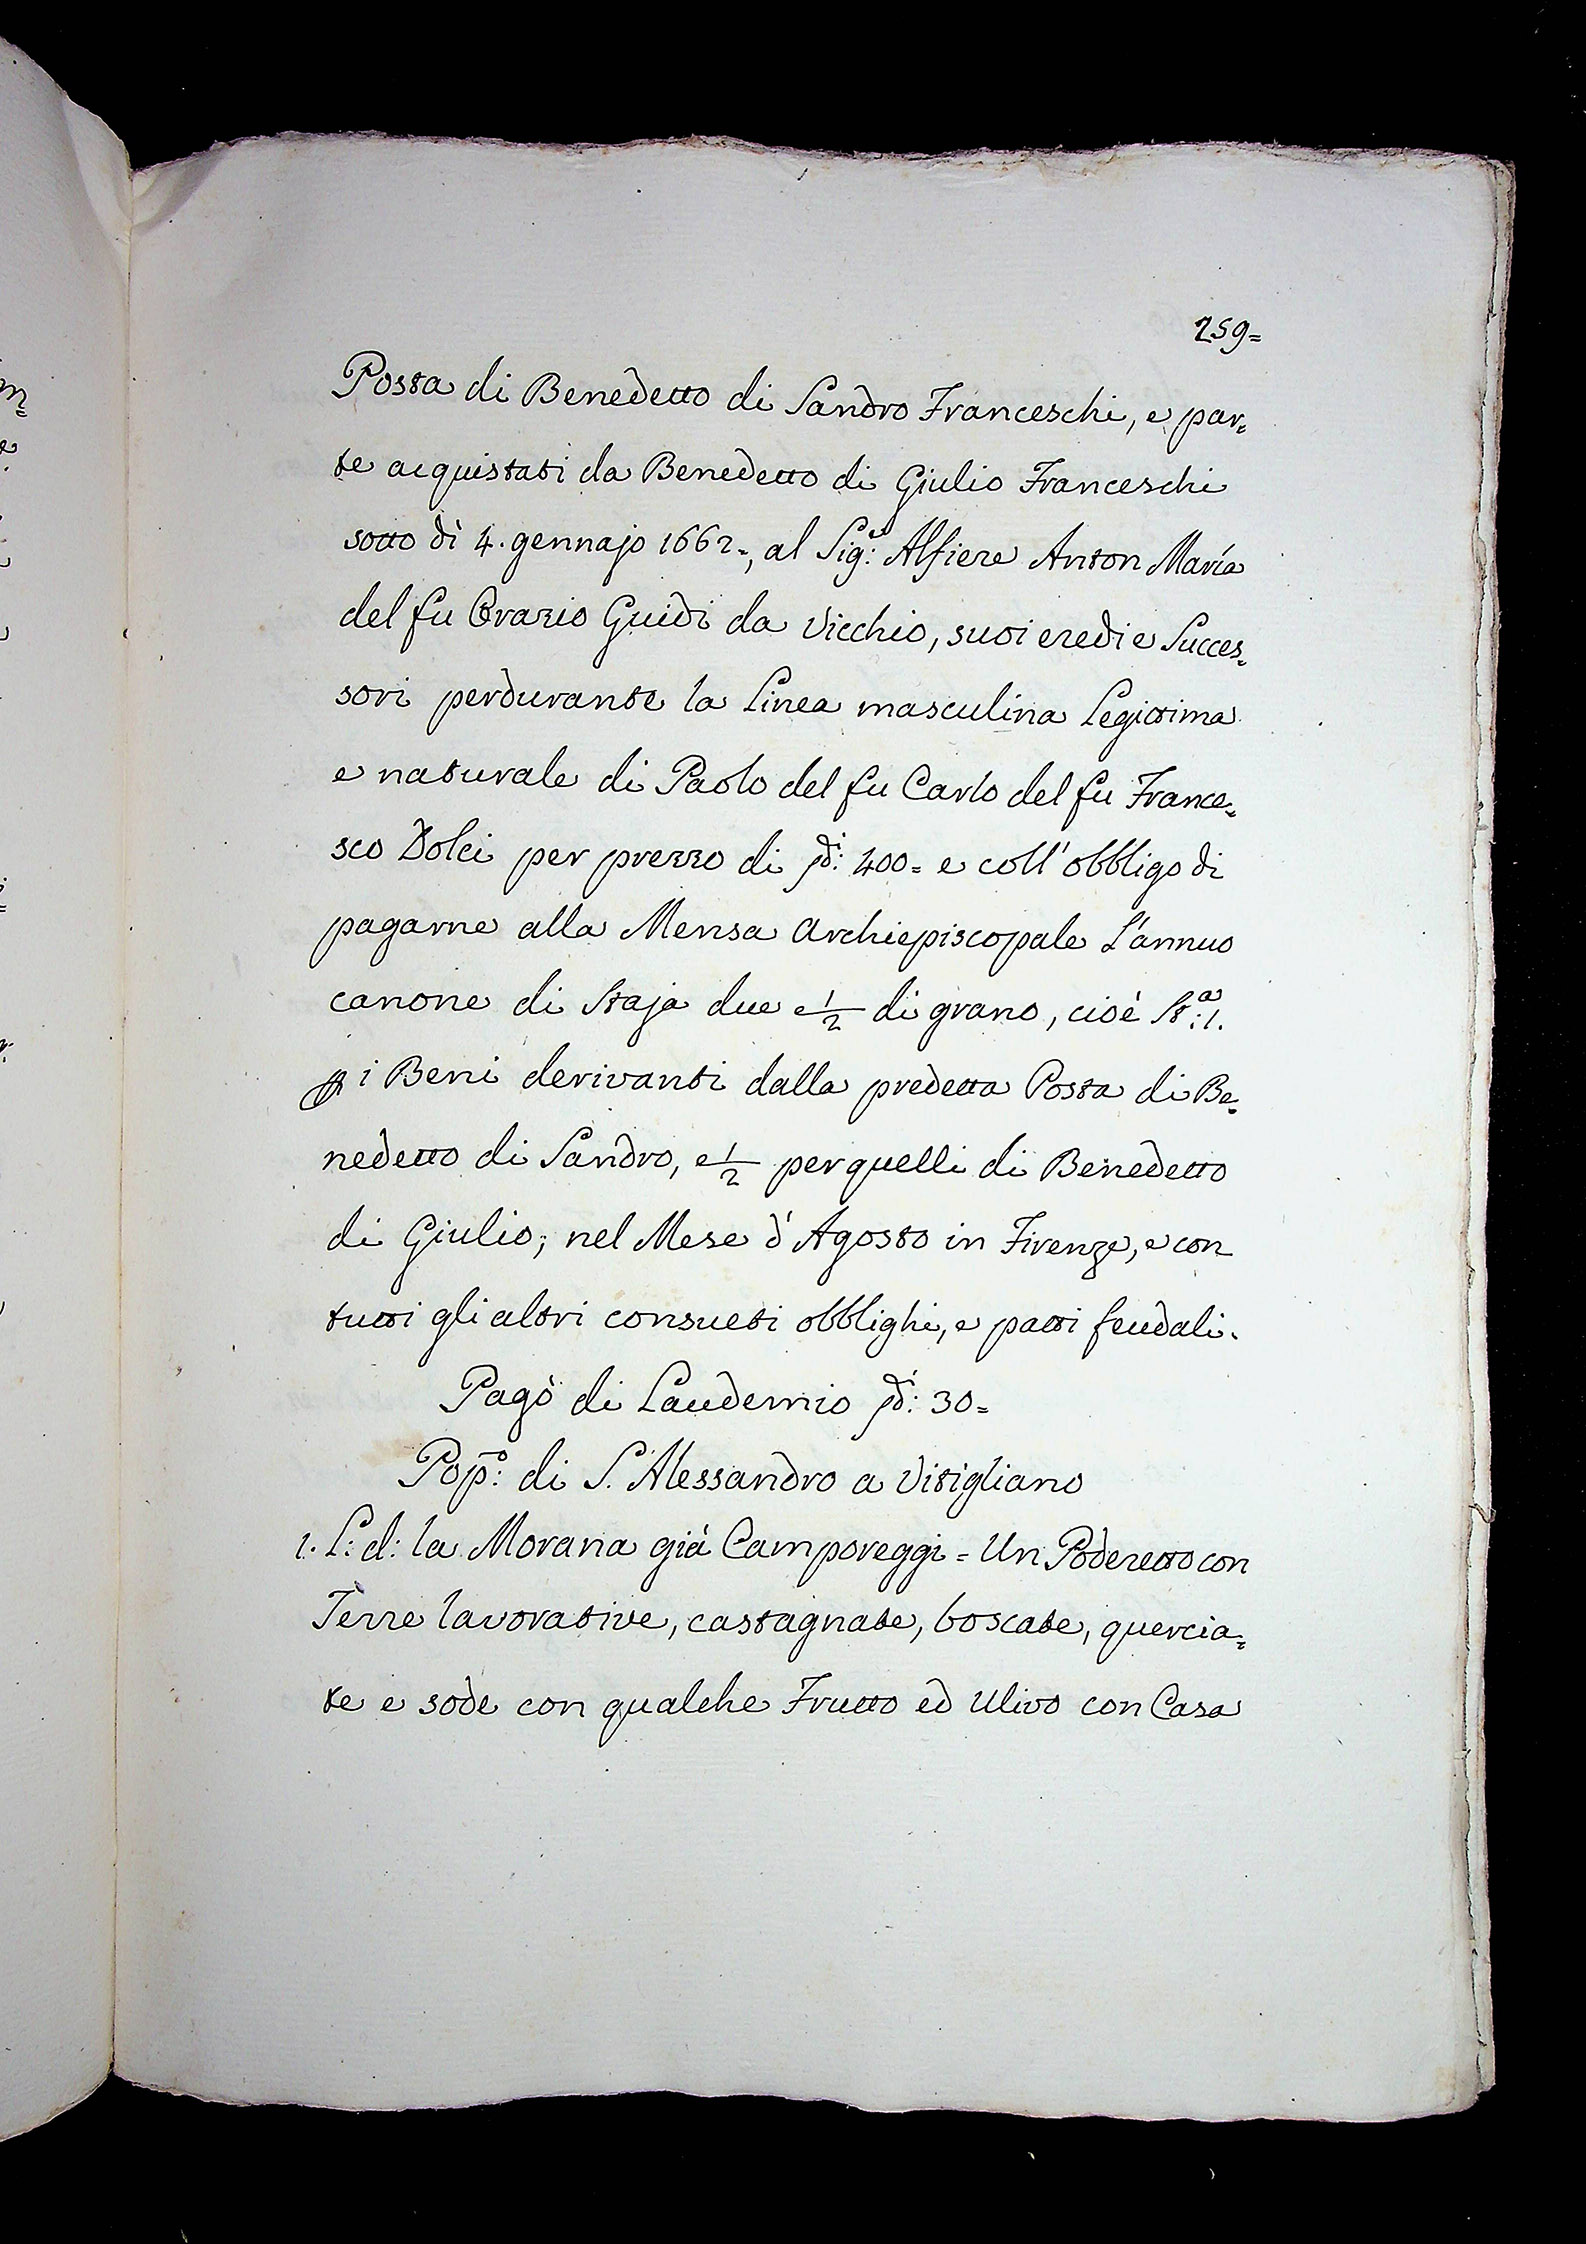 259=
Posta di Benedetto di Sandro Franceschi, e par=
te acquistati da Benedetto di Giulio Franceschi
sotto dì 4. gennajo 1662=, al Sig:r Alfiere Anton María
del fu Orazio Guidi da Vicchio, suoi eredi e Succes=
sori perdurante la Linea masculina Legittima
e naturale di Paolo del fu Carlo del fu France=
sco Dolci per prezzo di 400= e coll' obbligo di
pagarne alla Mensa Archiepiscopale L'annuo
canone di Staja due e 1/2 di grano, cioè St:a 1.
i Beni derivanti dalla predetta Posta di Be=
nedetto di Sandro, e 1/2 per quelli di Benedetto
di Giulio; nel Mese d'Agosto in Firenze, e con
tutti gli altri consueti obblighi, e patti feudali.
Pagò di Laudemio 30=
Pop:o di S. Alessandro a Vitigliano
1. L: d: la Morana già Camporeggi = Un Poderetto con
Terre lavorative, castagnate, boscate, quercia=
te e sode con qualche Frutto ed Ulivo con Casa